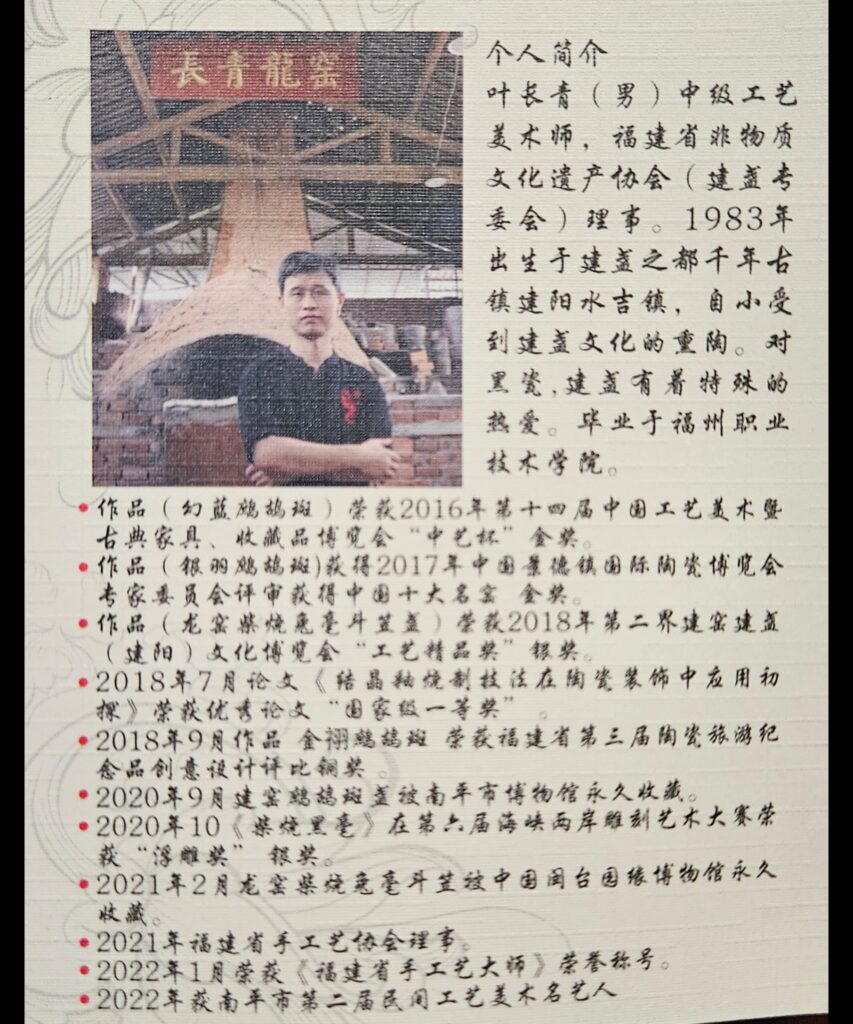 長青龍窑
个人简介
叶长青（男）中级工艺
美术师，福建省非物质
文化遗产协会（建盏专
委会）理事。1983年
出生于建盏之都千年古
镇建阳水吉镇，自小受
到建盏文化的熏陶。对
黑瓷,建盏有着特殊的
热爱。毕业于福州职业
技术学院。
作品（幻蓝鹧鸪斑）荣获2016年第十四届中国工艺美术暨
古典家具、收藏品博览会“中艺杯”金奖。
作品（银羽鹧鸪斑)获得2017年中国景德镇国际陶瓷博览会
专家委员会评审获得中国十大名窑 金奖。
作品（龙窑柴烧兔毫斗笠盏）荣获2018年第二界建窑建盏
（建阳）文化博览会“工艺精品奖”银奖。
2018年7月论文《结晶釉烧制技法在陶瓷装饰中应用初
探》荣获优秀论文“国家级一等奖”。
2018年9月作品 金翎鹧鸪斑 荣获福建省第三届陶瓷旅游纪
念品创意设计评比铜奖。
2020年9月建窑鹧鸪斑盏被南平市博物馆永久收藏。
2020年10《柴烧黑毫》在第六届海峡两岸雕刻艺术大赛荣
获“浮雕奖”银奖。
2021年2月龙窑柴烧兔毫斗笠被中国闽台园缘博物馆永久
收藏。
2021年福建省手工艺协会理事。
2022年1月荣获《福建省手工艺大师》荣誉称号。
2022年获南平市第二届民间工艺美术名艺人